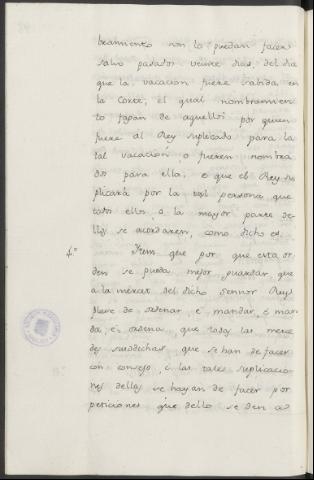 bramiento non la puedan facer
salvo pasados veinte dias, del dia
que la vacacion fuere sabida en
la Corte; el qual nombramien
to fagan de aquellos por quien
fuere al Rey suplicado para la
tal vacacion o fueren nombra
dos para ella; e que el Rey su
plicará por la tal persona que
todos ellos, o la mayor parte de
llos se acordaren, como dicho es.
4.º Item que por que esta or
den se pueda mejor guardar, que
a la mercet del dicho sennor Rey
plese de ordenar, é mandar, é man
da, é ordena, que todas las merce
des susodichas, que se han de facer
con consejo, é las tales suplicacio
nes dellas se hayan de facer por
peticiones que dello se den a